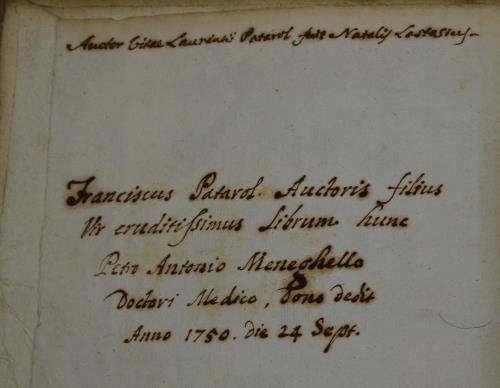 Auctor Vitae Laurentii Patarol fuit Natalis Lastesius.
Franciscus Patarol. Auctoris filius
Vir eruditissimus Librum hunc
Petro Antonio Meneghello
Doctori Medico, dono dedit
Anno 1750. die 24 Sept.